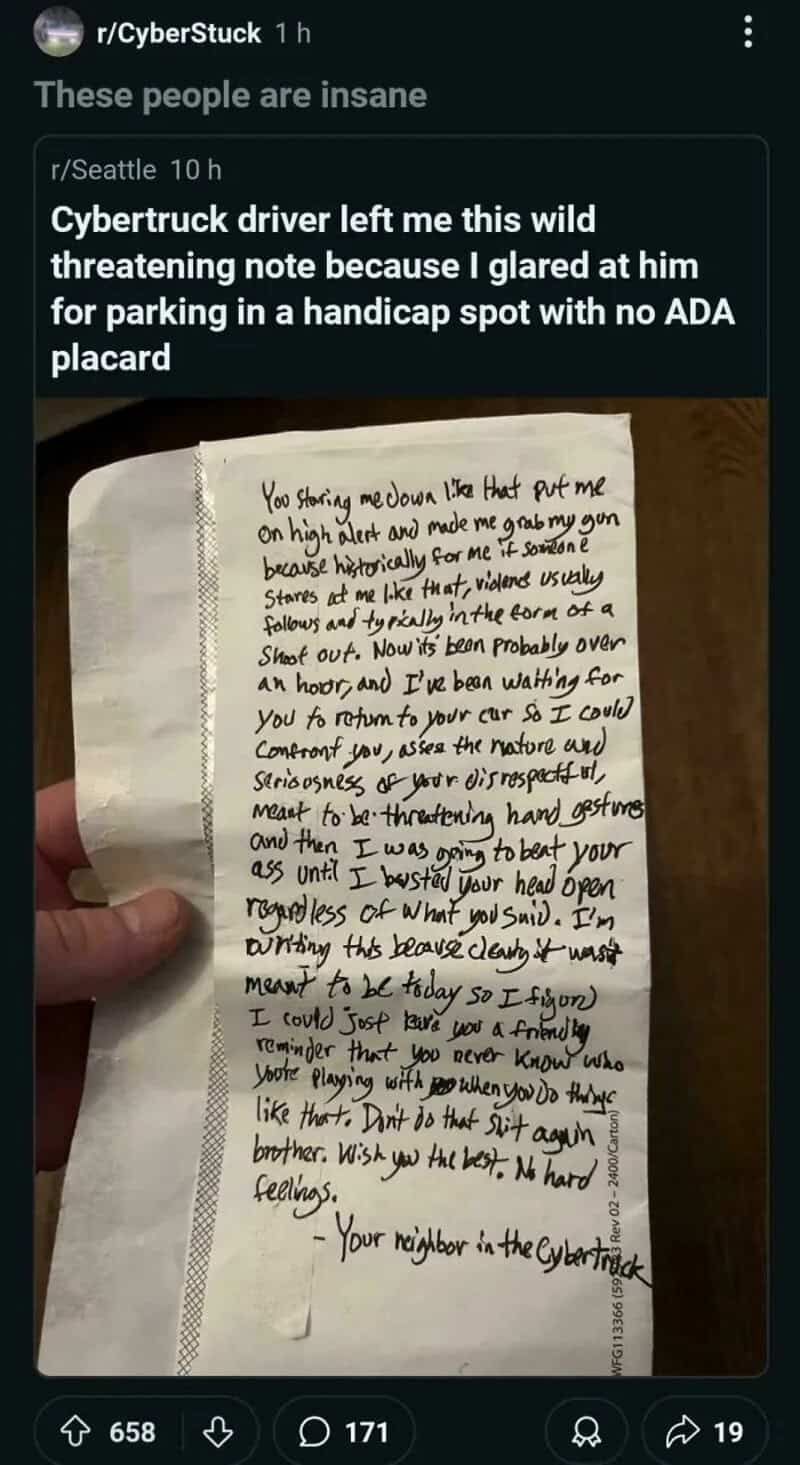 r/CyberStuck 1 h
These people are insane
r/Seattle 10 h
Cybertruck driver left me this wild
threatening note because I glared at him
for parking in a handicap spot with no ADA
placard
You staring me down like that put me
on high alert and made me grab my gun
because historically for me if someone
stares at me like that, violence usually
follows and typically in the form of a
shoot out. Now its been probably over
an hour, and I've been waiting for
you to return to your car so I could
confront you, asses the nature and
seriousness of your disrespectful,
meant to be threatening hand gestures
and then I was going to beat your
ass until I busted your head open
regardless of what you said. I'm
writing this because clearly it wasn't
meant to be today so I figured
I could just leave you a friendly
reminder that you never know who
you're playing with when you do things
like that. Don't do that shit again
brother. Wish you the best. No hard
feelings.
- Your neighbor in the Cybertruck
WFG113366 (59 3 Rev 02 – 2400/Carton)
658 171 19